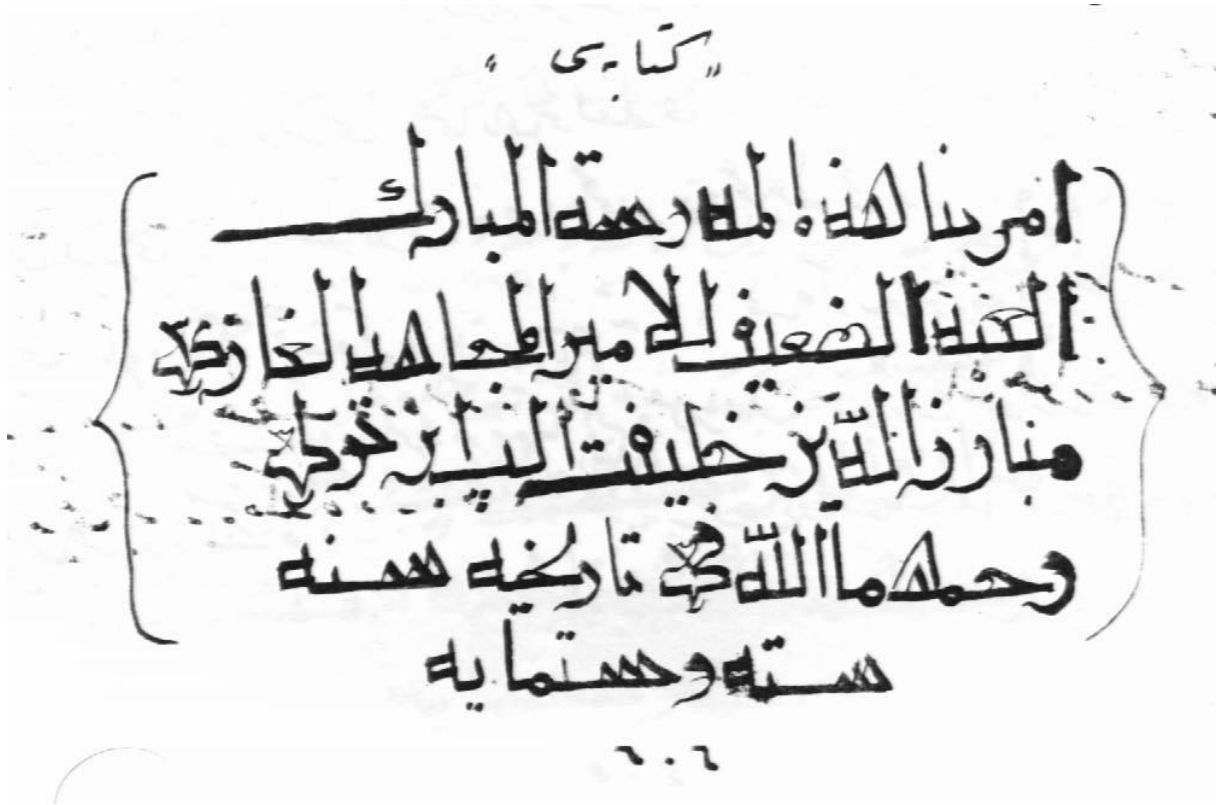 "كتابه سى"
امر بنا لهذه المدرسة المبارك
العبد الضعيف الامير المجاهد الغازى
مبارز الدين خليفت الب بن تولى
رحمهما الله فى تاريخه سنه
سته وستمايه
٦٠٦